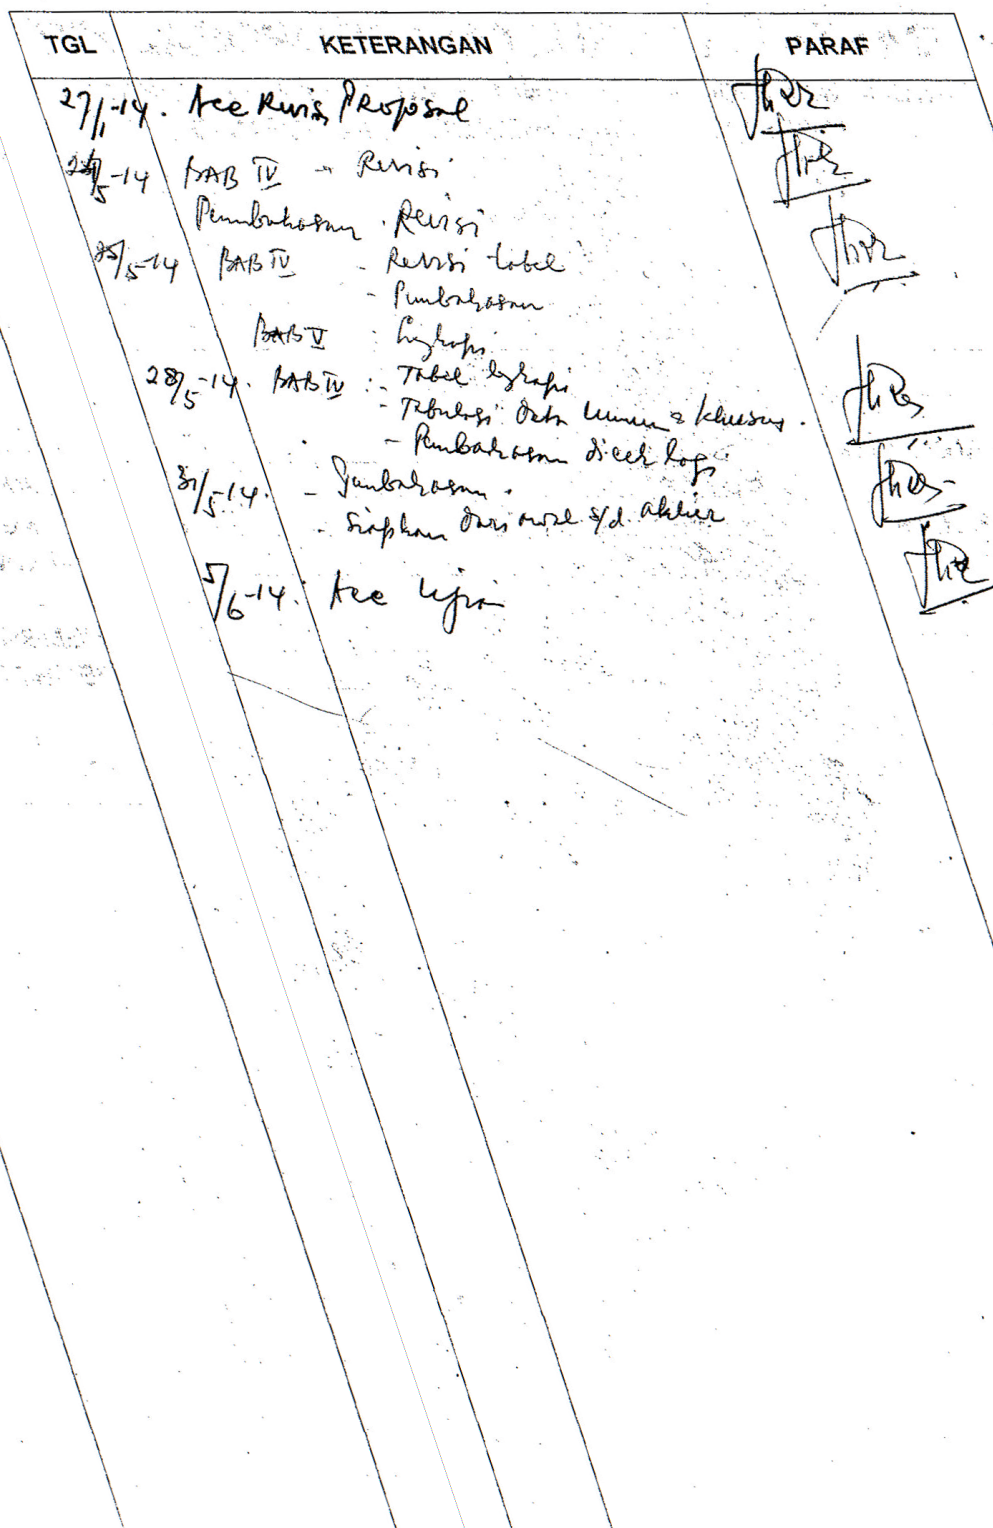 TGL KETERANGAN PARAF
27/1-14. Acc Revisi Proposal
/5-14 BAB IV - Revisi
Pembahasan . Revisi
25/5-14 BAB IV - Revisi tabel
- Pembahasan
BAB V : Lengkapi
28/5-14. BAB IV : - Tabel lengkapi
- Tabulasi data umum & khusus.
- Pembahasan dicek lagi
31/5-14. - Pembahasan.
- Siapkan dari awal s/d. akhir
5/6-14. Acc Ujian